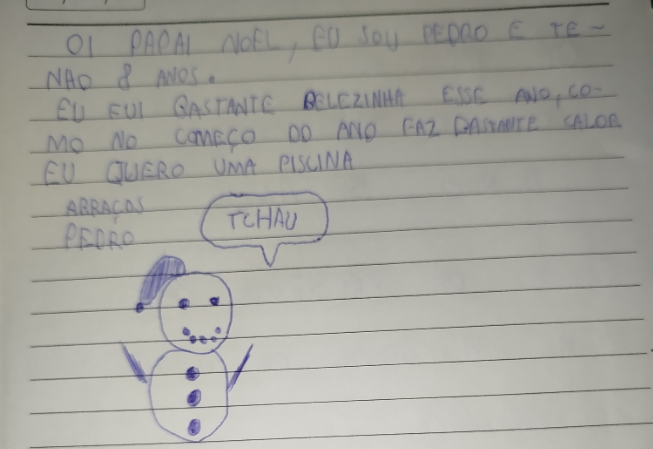 OI PAPAI NOEL, EU SOU PEDRO E TE-
NHO 8 ANOS.
EU FUI BASTANTE BELEZINHA ESSE ANO, CO-
MO NO COMEÇO DO ANO FAZ BASTANTE CALOR
EU QUERO UMA PISCINA
ABRAÇOS
PEDRO
TCHAU